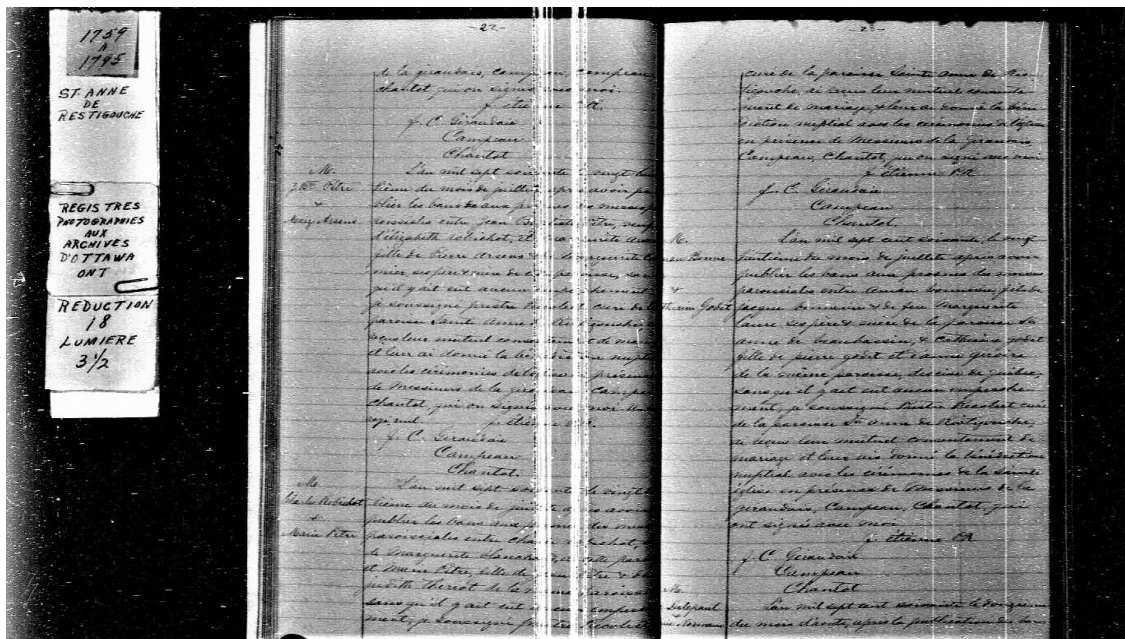 1759
A
1795
ST. ANNE
DE
RESTIGOUCHE
REGISTRES
PHOTOGRAPHIES
AUX
ARCHIVES
D'OTTAWA
ONT
REDUCTION
18
LUMIERE
3 1/2
-22-
de la girandais, campeau, campeau
chantot qui on signés avec moi.
f. etienne P.R.
J. C. Giraudais
Campeau
Chantot
M.
J. Bte Pitre
&
L'an mil sept soixante le vingt
tième du mois de juillet après avoir pu
blier les bans de aux prones des messes
paroissiales entre jean Baptiste Pitre, veuf
d'élizabeth robichot, et marguerite arsen
fille de Pierre Arseno & de marguerite
mier ses pere & mere de cette paroisse, san
qu'il y ait eut aucun empechement
je soussigné prestre Recolest curé de la
paroisse Sainte Anne de Ristigouche
reçus leur mutuel consentement de mar
et leur ai donné la bénédiction nuptia
avec les cérémonies de l'église en présence
de Messieurs de la girandais Campe
Chantot qui on signés avec moi
f. étienne P.R.
J. C. Giraudais
Campeau
Chantot.
M.
Charles Robichot
+
Marie Pitre
L'an mil sept soixante le vingt
tième du mois de juillet après avoir
publier les bans aux prones des mess
paroissiales entre Charle robichot,
de Marguerite Blanchard, de cette paro
et Marie Pitre, fille de jean Pitre & de
judith theriot de la meme paroisse
sans qu'il y ait eut aucun empeche
ment, je soussigné prestre Recolest
-23-
curé de la paroisse Sainte Anne de Ris
tigouche, ai reçus leur mutuel consente
ment de mariage & leur ai donné la béné
diction nuptial avec les cérémonies de l'église
en présence de Messieurs de la Girandais
Campeau, Chantot, qui on signé avec moi
f. étienne P.R.
J. C. Giraudais
Campeau
Chantot.
M.
&
Catherine Godet
L'an mil sept cent soixante, le vingt
huitieme du mois de juillet après avoir
publier les bans aux prones des messes
paroissiales entre aman bonnevie, fils de
jacque bonnevie & de feu Marguerite
Laure ses pere & mere de la paroisse Ste
anne de beaubassin, & Catherine godet
fille de pierre godet et d'anne giroire
de la meme paroisse,
sans qu'il y ait eut aucun empeche
ment, je soussigné Prestre Récolest curé
de la paroisse Ste Anne de Ristigouche,
ai reçus leur mutuel consentement de
mariage et leur ais donné la bénédiction
nuptial avec les cérémonies de la Sainte
église en présence de Messieurs de la
girandais, Campeau, Chantot, qui
ont signés avec moi
f. étienne P.R.
J. C. Giraudais
Campeau
Chantot
M.
L'an mil sept cent soixante le douzieme
du mois d'aoust, après la publication des ban